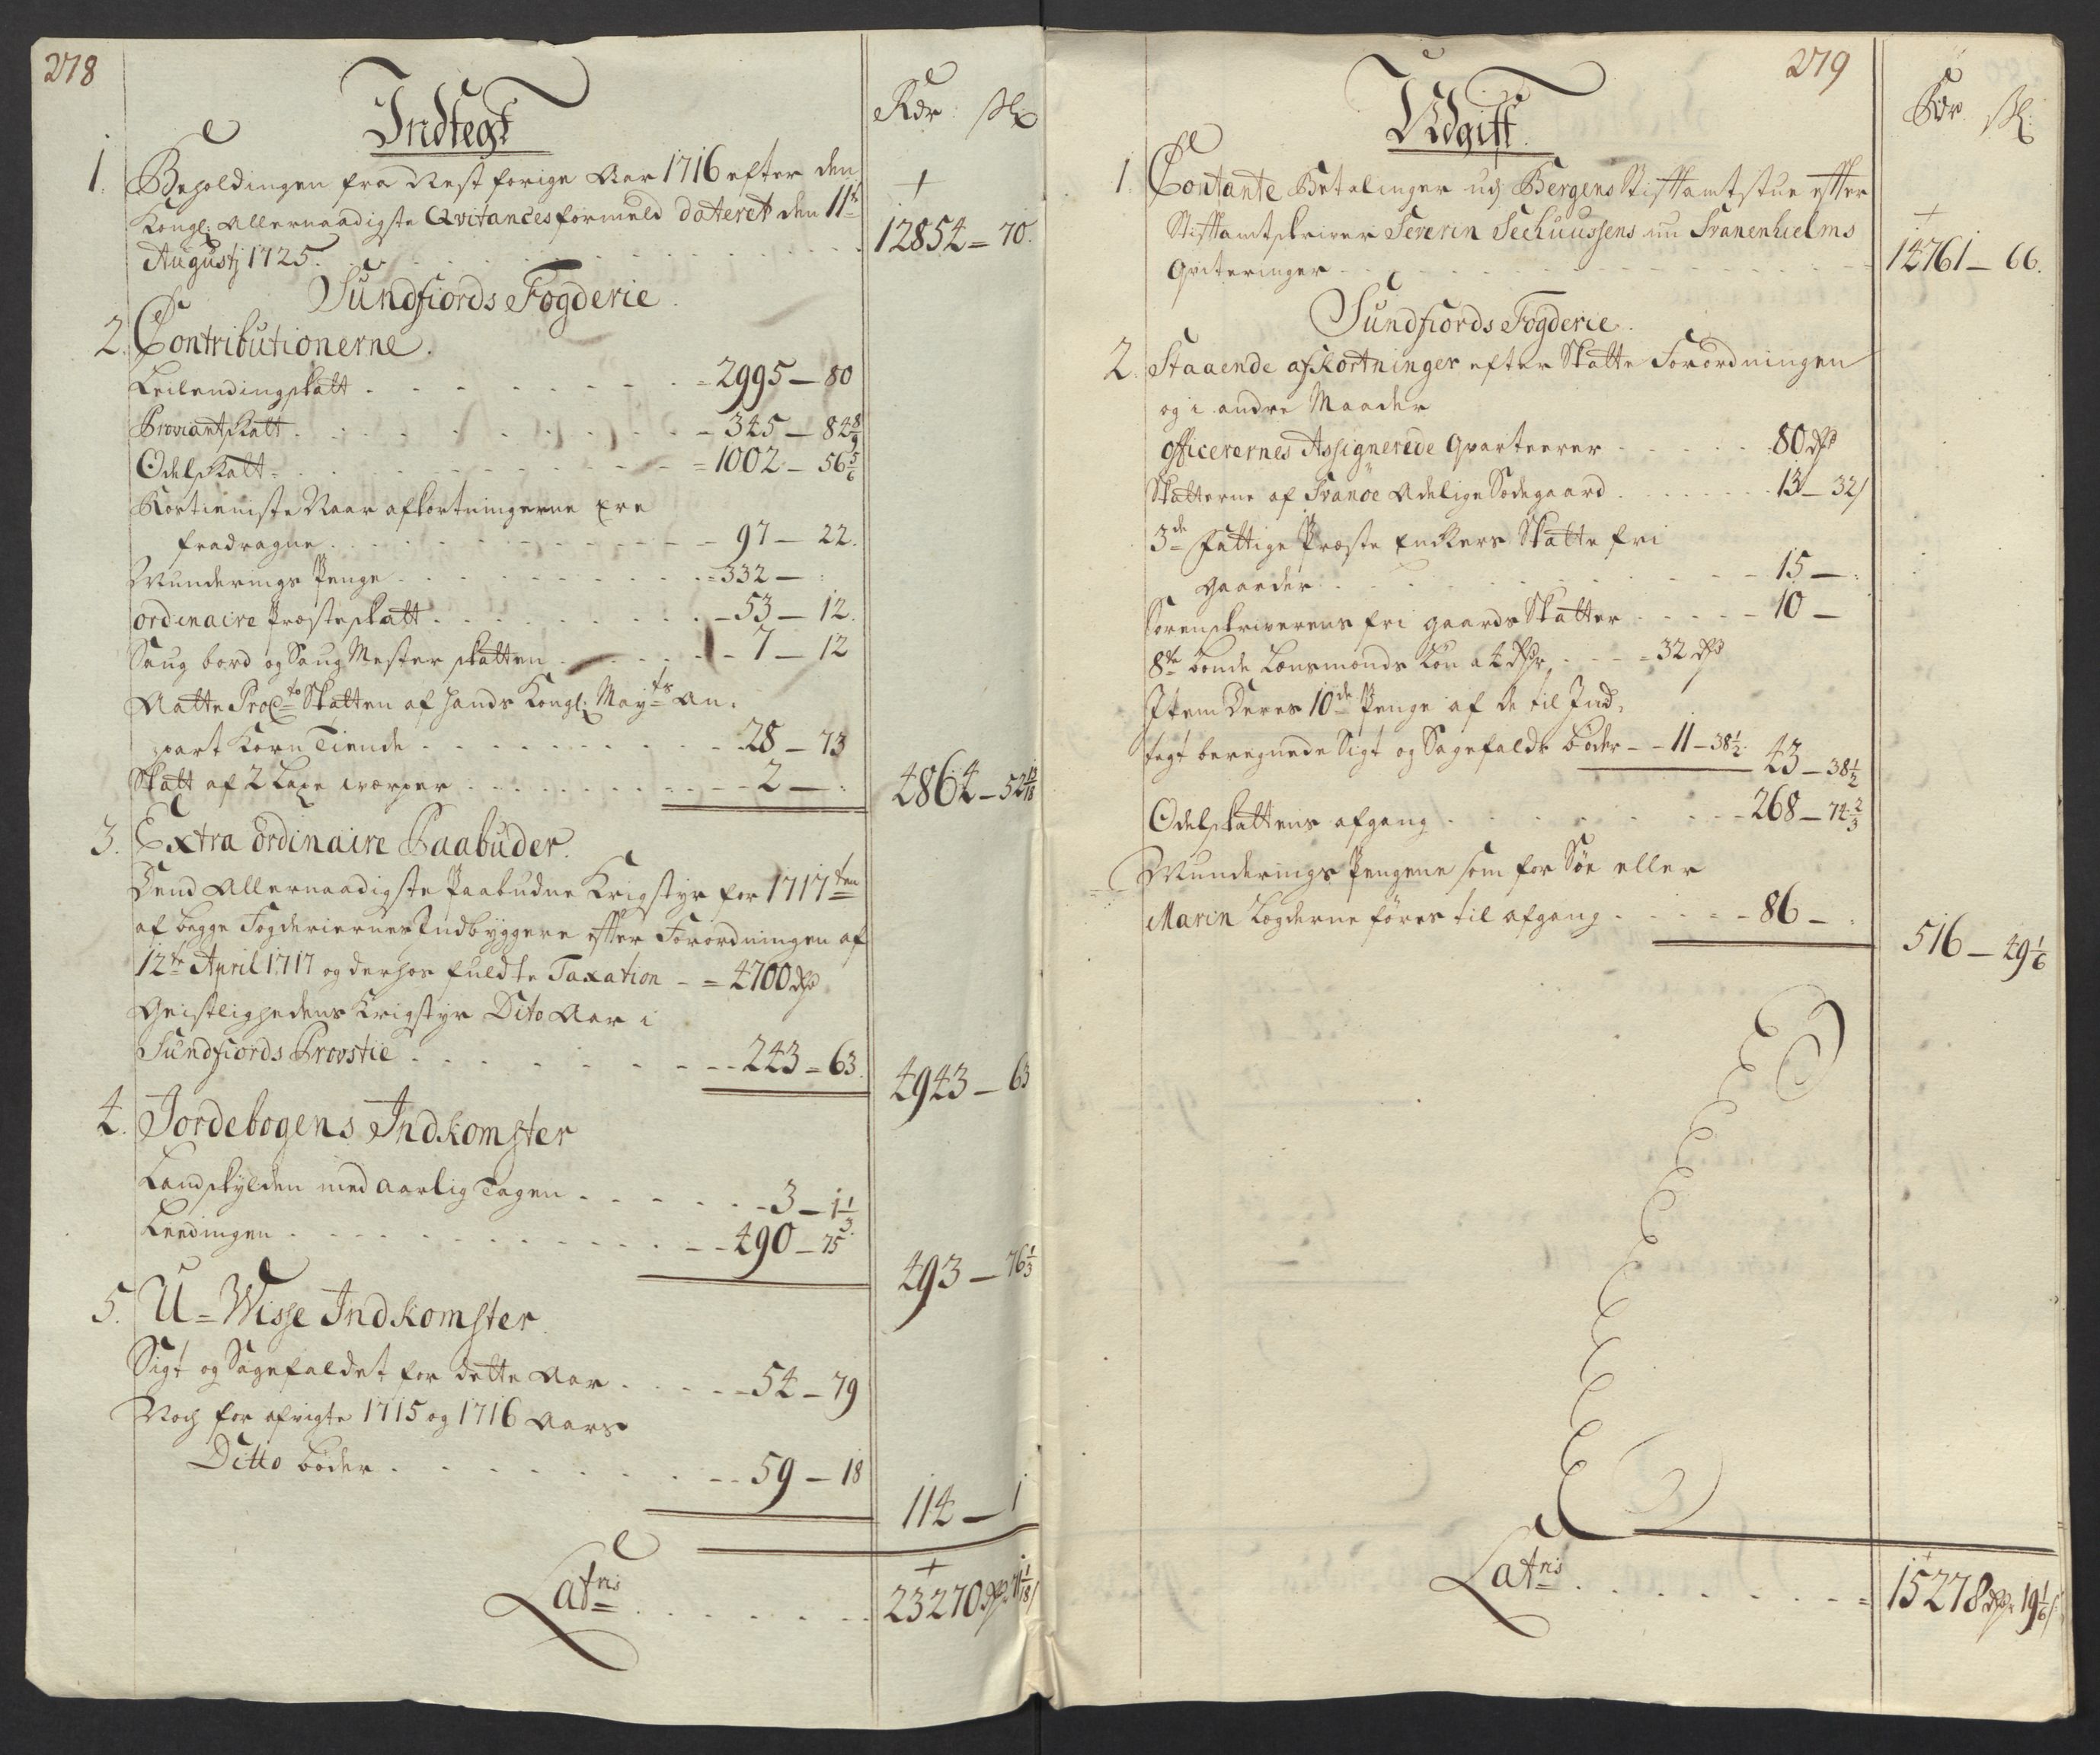 278
Indtegt
Rdr: sk
1. Beholdingen fra Nest forige Aar 1716 efter den
Kongl: Allernaadigste Qvitances formeld dateret den 11te
Augustj 1725. 12854 = 70.
Sundfiords Fogderie.
2. Contributionerne.
Leilendingskatt = 2995 — 80
Proviantskatt - 345 — 84 8/9
Odelskatt = 1002 — 56 5/6
Kortieniste Naar afkortningerne ere
fradragne - 97 — 22.
Munderings Penge = 332 — :
ordinaire Præsteskatt - 53 — 12.
Saug bord og Saug Mester skatten - 7 — 12
Aatte Proc:to Skatten af hands Kongl: Mayts An-
part Korn Tiende - 28 — 73
Skatt af 2 Laxe værper - 2 — :
4864 — 52 13/18
3. Extra ordinaire Paabuder.
Dend Allernaadigste Paabudne Krigstyr for 1717ten
af begge Fogderiernes Indbyggere efter Forordningen af
12te April 1717 og derhos fuldte Taxation - = 4700 rdr
Geistlighedens Krigstyr Dito Aar i
Sundfiords Provstie - 243 = 63.
4943 — 63
4. Jordebogens Indkomster
Landskylden med aarlig Tagen - 3 — 1 1/3
Leedingen - 490 — 75
493 — 76 1/3
5. U-Wisse Indkomster
Sigt og Sagefaldet for dette Aar - 54 — 79
Noch for afvigte 1715 og 1716 Aars
Ditto bøder - 59 — 18
114 — 1
Latris 23270 rdr 71 1/18 s
279
Udgift.
Rdr sk:
1. Contante Betalinger udj Bergens Stiftamtstue efter
Stiftamtskriver Severin Seehuussens nu Svanenhielms
Qviteringer 14761 — 66.
Sundfiords Fogderie.
2. Staaende afkortninger efter Skatte Forordningen
og i andre Maader
Officerernes Assignerede Qvarteerer 80 rdr
Skatterne af Svanöe Adelige Sædegaard 13 — 32 s
3de fattige Præste Enckers Skatte fri
Gaarder - 15 — :
Sorenskriverens fri gaards Skatter - 10 —
8te bonde Lensmænds Løn a 4 rdr = 32 rdr
Item Deres 10de Penge af de til Ind-
tegt beregnede Sigt og Sagefalds bøder - 11 — 38 1/2. 43 — 38 1/2
Odelskattens afgang - 268 — 74 2/3
Munderings Pengene som for Söe eller
Marin Legderne föres til afgang - 86 — :
516 — 49 1/6
Latris 15278 rdr 19 1/6 s